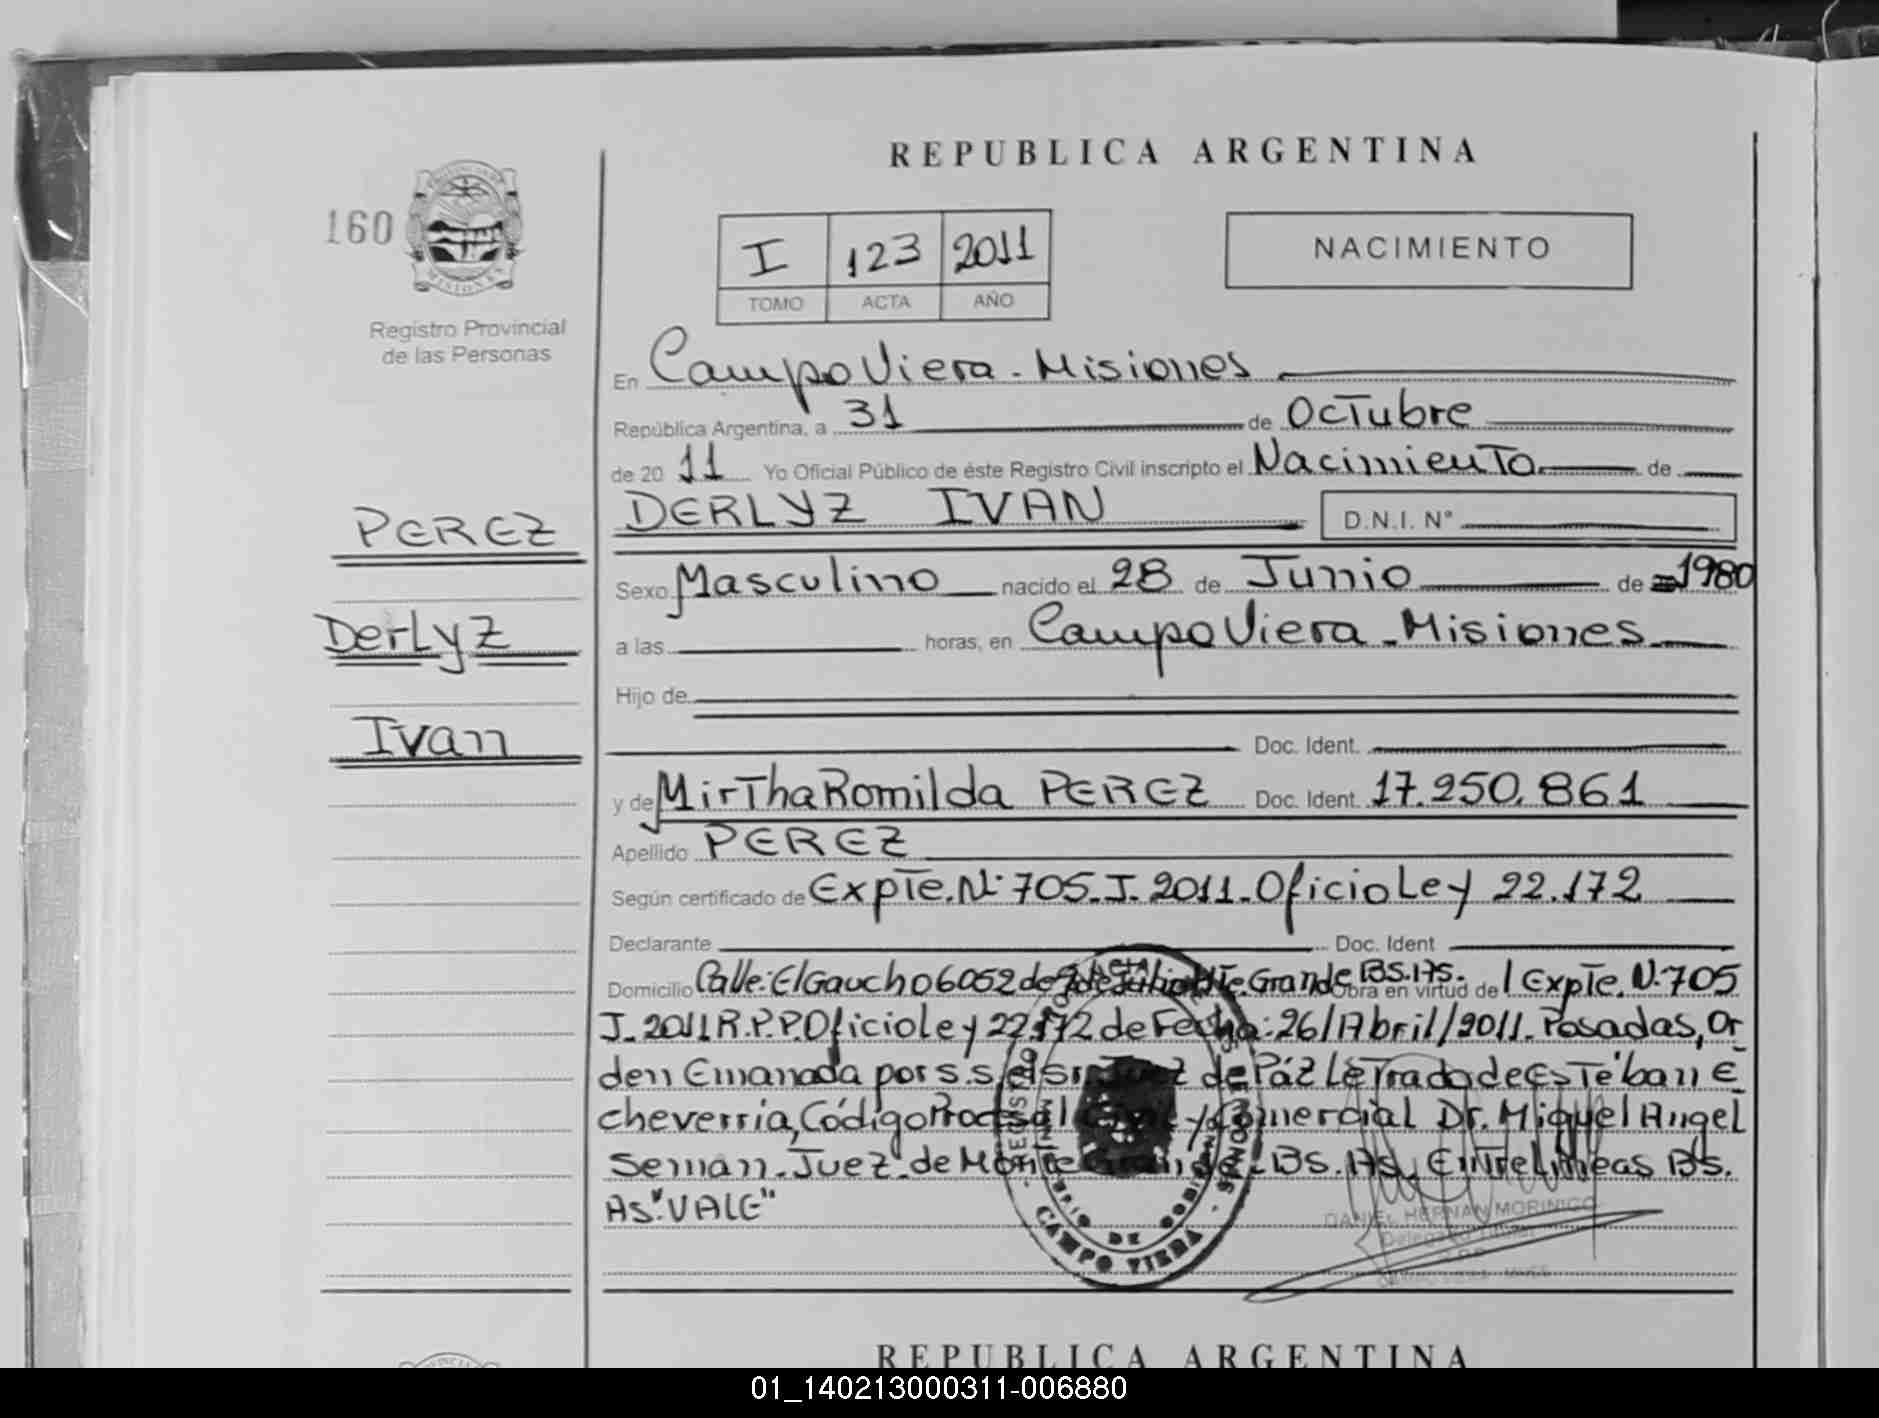 REPUBLICA ARGENTINA
160
I 123 2011
TOMO ACTA AÑO
NACIMIENTO
Registro Provincial
de las Personas
En Campo Viera - Misiones
República Argentina, a 31 de Octubre
de 20 11 Yo Oficial Público de éste Registro Civil inscripto el Nacimiento de
PEREZ
DERLYZ IVAN D.N.I. N°
Sexo Masculino nacido el 28 de Junio de 1980
Derlyz
a las horas, en Campo Viera - Misiones
Hijo de
Ivan
Doc. Ident.
y de Mirtha Romilda PEREZ Doc. Ident. 17.250.861
Apellido PEREZ
Según certificado de Expte. N° 705-J-2011-Oficio Ley 22.172
Declarante Doc. Ident
Domicilio Calle: El Gaucho 6052 de 9 de Julio Mte. Grande BS.AS. Obra en virtud de l Expte. N° 705
J-2011 R.P.P. Oficio Ley 22.172 de Fecha: 26/Abril/2011. Posadas, Or
den Emanada por S.S. el Sr. Juez de Páz Letrado de Estéban E
cheverria, Código Procesal Civil y Comercial Dr. Miguel Angel
Sernan. Juez de Monte Grande - BS.As. Entrelineas Bs.
As. "VALE"
DANIEL HERNAN MORINIGO
Delegado Titular
CAMPO VIERA
REPUBLICA ARGENTINA
01_140213000311-006880